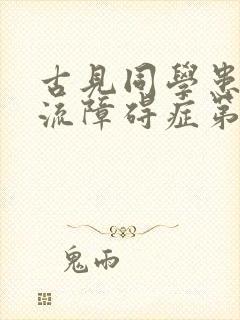 古見同學患
流障碍症第
鬼雨